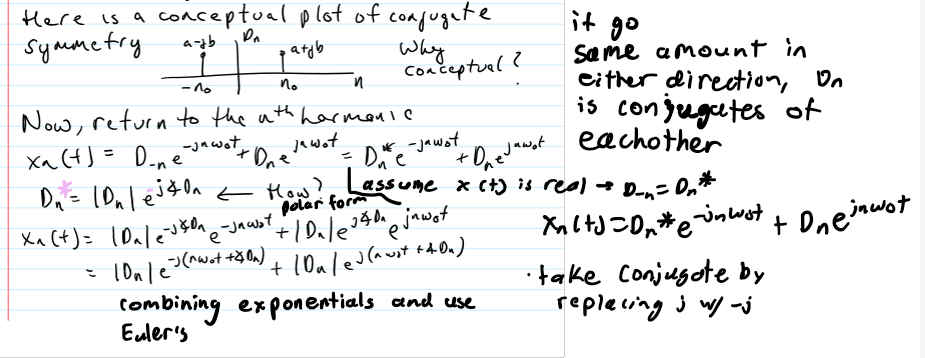 Here is a conceptual plot of conjugate
symmetry
a-jb
Dn
a+jb
Why
conceptual?
-n₀
n₀
n
Now, return to the nth harmonic
xn(t) = D₋n e^-jnω₀t + Dn e^jnω₀t = Dn* e^-jnω₀t + Dn e^jnω₀t
Dn* = |Dn| e^-j∡Dn ← How?
polar form
assume x(t) is real → D₋n = Dn*
xn(t) = |Dn| e^-j∡Dn e^-jnω₀t + |Dn| e^j∡Dn e^jnω₀t
= |Dn| e^-j(nω₀t + ∡Dn) + |Dn| e^j(nω₀t + ∡Dn)
combining exponentials and use
Euler's
it go
same amount in
either direction, Dn
is conjugates of
eachother
xn(t) = Dn* e^-jnω₀t + Dn e^jnω₀t
· take conjugate by
replacing j w/ -j